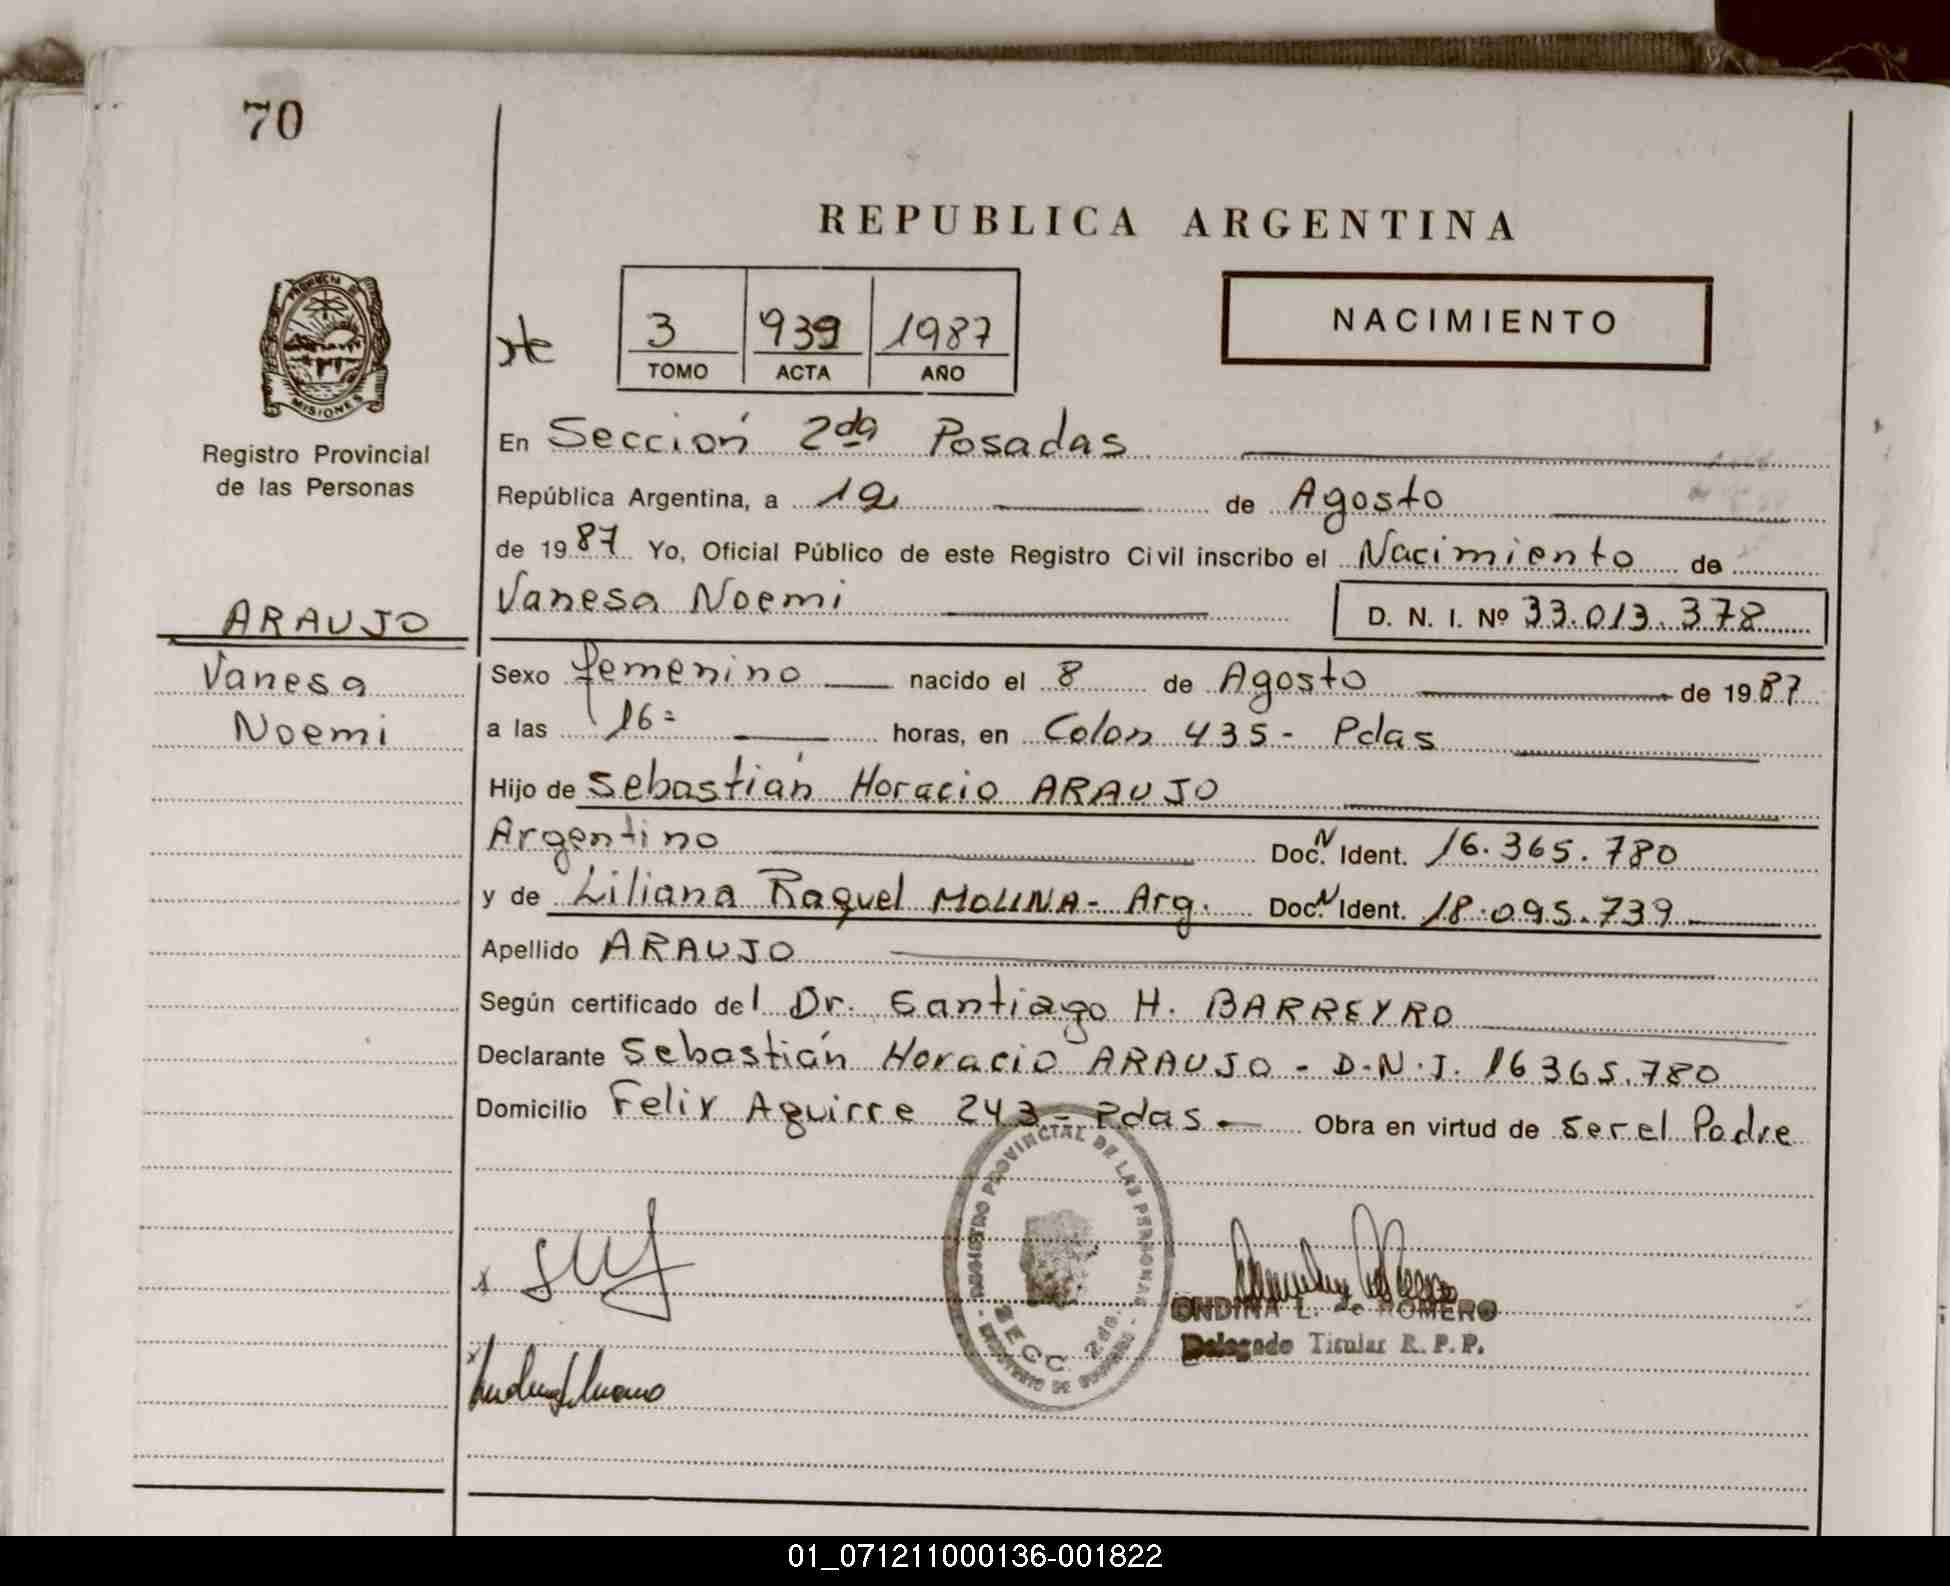 70
REPUBLICA ARGENTINA
PROVINCIA DE
MISIONES
Registro Provincial
de las Personas
3 939 1987
TOMO ACTA AÑO
NACIMIENTO
En Sección 2da Posadas
República Argentina, a 12 de Agosto
de 1987 Yo, Oficial Público de este Registro Civil inscribo el Nacimiento de
Vanesa Noemi D. N. I. Nº 33.013.378
ARAUJO
Vanesa
Noemi
Sexo femenino nacido el 8 de Agosto de 1987
a las 16= horas, en Colon 435- Pdas
Hijo de Sebastián Horacio ARAUJO
Argentino Doc. N Ident. 16.365.780
y de Liliana Raquel MOLINA- Arg. Doc. N Ident. 18.095.739
Apellido ARAUJO
Según certificado del Dr. Santiago H. BARREYRO
Declarante Sebastián Horacio ARAUJO - D.N.I. 16 365.780
Domicilio Felix Aguirre 243 - Pdas - Obra en virtud de ser el Padre
REGISTRO PROVINCIAL DE LAS PERSONAS
SECC. 2da.
ONDINA L. de ROMERO
Delegado Titular R. P. P.
01_071211000136-001822